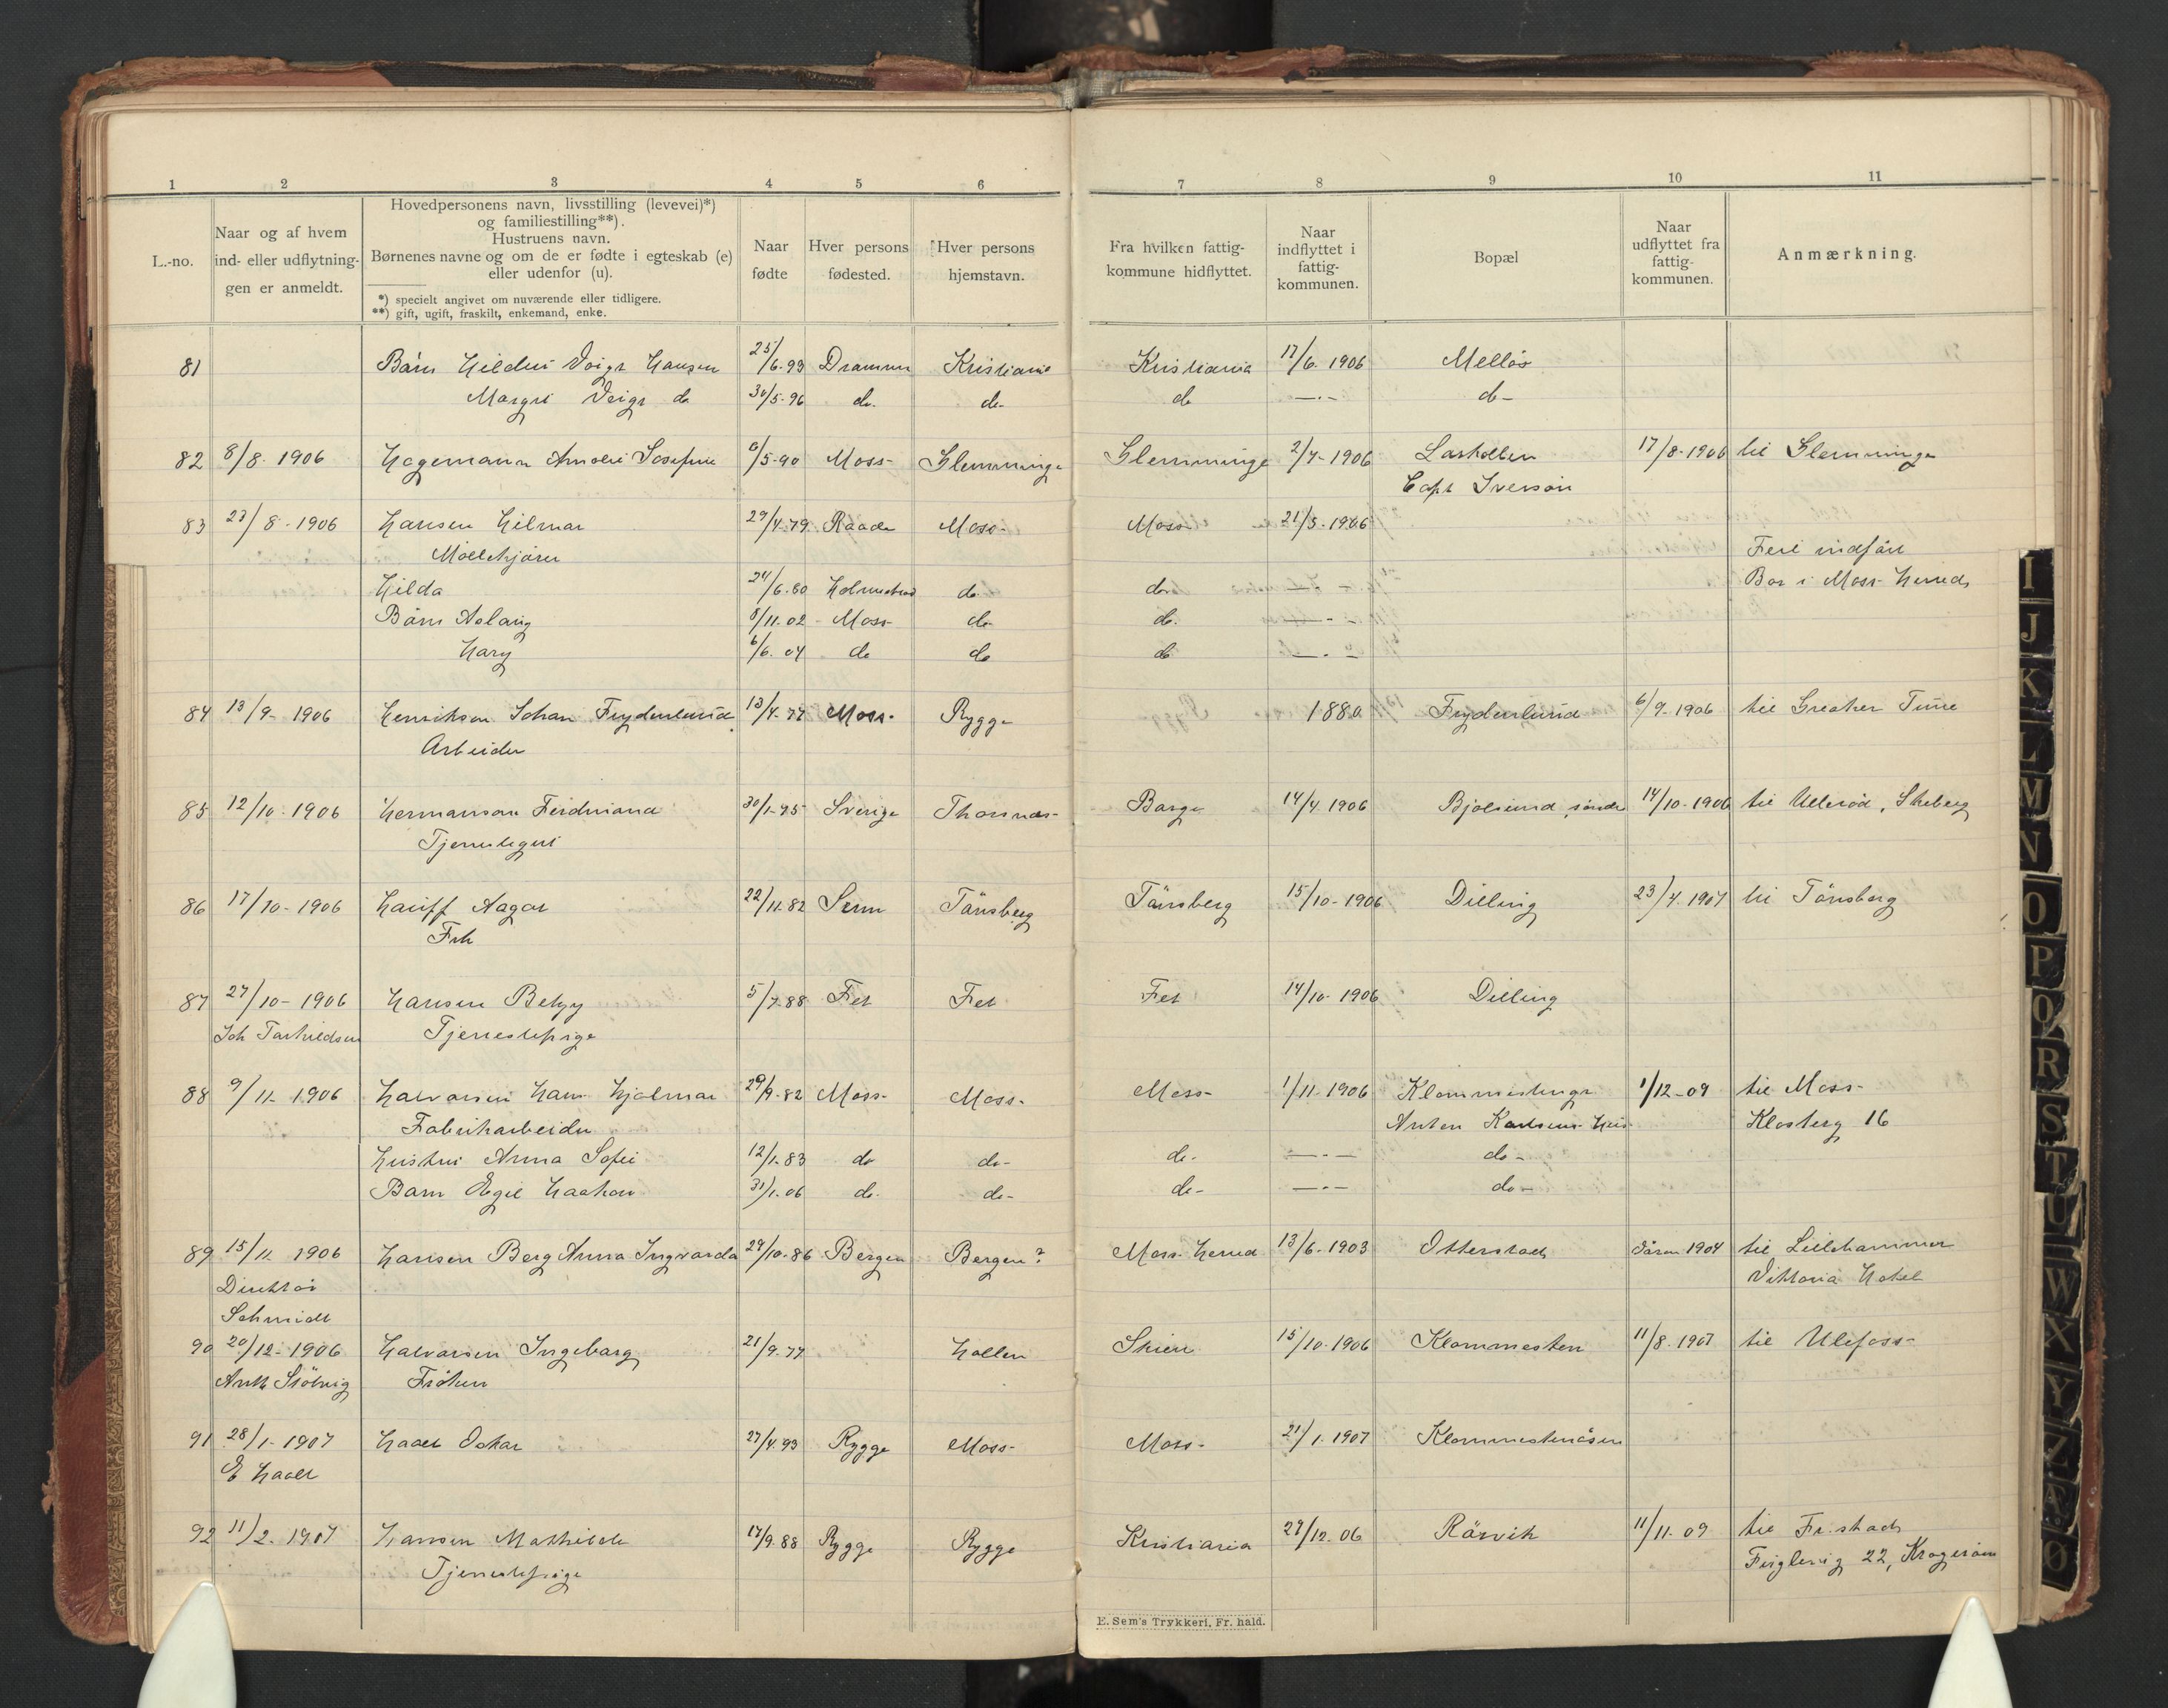 1 2 3 4 5 6 7 8 9 10 11
L.-no.
Naar og af hvem
ind- eller udflytnin-
gen er anmeldt.
Hovedpersonens navn, livsstilling (levevei)*)
og familiestilling**).
Hustruens navn.
Børnenes navne og om de er fødte i egteskab (e)
eller udenfor (u).
*) specielt angivet om nuværende eller tidligere.
**) gift, ugift, fraskilt, enkemand, enke.
Naar
fødte
Hver persons
fødested.
Hver persons
hjemstavn.
Fra hvilken fattig-
kommune hidflyttet.
Naar
indflyttet i
fattig-
kommunen.
Bopæl
Naar
udflyttet fra
fattig-
kommunen.
Anmærkning.
81 Børn Hildur Voigt Hansen 25/6.93 Drammen Kristiania Kristiania 17/6. 1906 Melløs
Margit Voigt do 30/5-96 do. do- do —.– do–
82 8/8. 1906 Hagemann Josefine /5-90 Moss- Glemminge Glemminge 2/7-1906 Larkollen 17/8-1906 til Glemminge
Capt Iversen
83 23/8-1906 Hansen Hilmar 29/4-79 Raade Moss- Moss 21/5-1906
Møllekjører Bor i Moss Herred
Hilda 24/6.80 Holmestrand do do —.–
Børn Aslaug 8/11.02 Moss do do. —.–
Hary 6/6. 04 do do do —.–
84 13/9-1906 Henriksen Johan Frydenlund 13/4-77 Moss- Rygge 1880 Frydenlund 6/9-1906 til Greaker Tune
Arbeider
85 12/10-1906 Hermanson Ferdinand 30/1-95 Sverige Borge 14/4 1906 Bjølsund søndre 14/10-1906 til Ullerød, Skeberg
Tjenestegut
86 17/10-1906 Hauff Aagot 22/11-82 Sem Tønsberg Tønsberg 15/10-1906 Dilling 23/4.1907 til Tønsberg
Frk
87 27/10-1906 Hansen Betzy 5/7.88 Fet Fet Fet 14/10-1906 Dilling
Joh Torkildsen Tjenestepige
88 9/11-1906 Halvorsen Hans Hjalmar 29/9-82 Moss- Moss- Moss- 1/11.1906 1/12-09 til Moss-
Fabrikarbeider Anton Karlsens Hus Klosterg 16
Hustru Anna Sofie 12/1.83 do do- do- —.– do–
Barn Egil Haakon 31/1.06 do. do- do- —.– do–
89 15/11 1906 Hansen Berg Anna Ingvarda 29/10-86 Bergen Bergen? Moss Herred 13/6-1903 Otterstad Våren 1904 til Lillehammer
Direktør Viktoria Hotel
Schmidt
90 20/12-1906 Halvorsen Ingeborg 21/9.77 Hollen Skien 15/10-1906 Klommesten 11/8.1907 til Ulefoss-
Frøken
91 28/1-1907 Haaet Oskar 27/4.93 Rygge Moss- Moss- 21/1.1907 Klommestenåsen
E Haaet
92 11/2-1907 Hansen Mathilde 17/9.88 Rygge Rygge Kristiania 29/12.06 Rørvik 11/11.09 til Fr.stad
Tjenestepige 22, Kragerøen
E. Sem's Trykkeri, Fr. hald.
I
J
K
L
M
N
O
P
Q
R
S
T
U
W
X
Y
Z
Æ
Ø